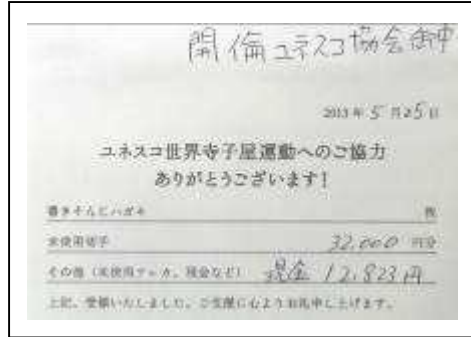 開倫ユネスコ協会御中
2013年5月25日
ユネスコ世界寺子屋運動へのご協力
ありがとうございます!
書きそんじハガキ 枚
未使用切手 32,000円分
その他(未使用テレカ、現金など) 現金12,823円
上記、受領いたしました。ご支援に心よりお礼申し上げます。